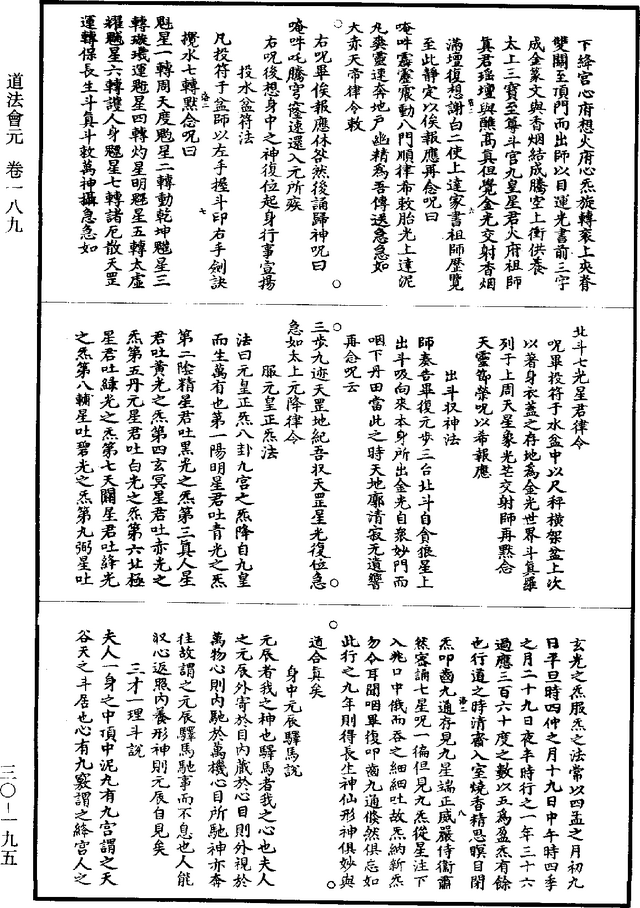 道法會元　卷一八九
三〇—一九五
下絳宮心府想火府心炁旋轉衮上夾脊
雙關至頂門而出師以目運光書前三字
成金篆文與香烟結成騰空上衝供養
太上三寶至尊斗宮九皇星君火府祖師
真君瑤壇與醮高真但覺金光交射香烟
滿壇復想謝白二使上達家書祖師歷覽
至此靜定以俟報應再念呪曰
唵吽霹靂震動八門順律希敕胎光上達泥
丸爽靈速奔地戶幽精為吾傳送急急如
大赤天帝律令敕
右呪畢俟報應休欲然後誦歸神呪曰
唵吽吒騰宮窿速還入元所疾
右呪後想身中之神復位起身行事宣揚
投水盆符法
凡投符于盆師以左手握斗印右手劍訣
攪水七轉默念呪曰
魁星一轉周天度䰢星二轉動乾坤䰡星三
轉璇璣運魓星四轉灼星明䰣星五轉太虛
耀魒星六轉護人身魒星七轉諸厄散天罡
運轉保長生斗真斗敕萬神攝急急如
北斗七光星君律令
呪畢投符于水盆中以尺秤橫架盆上次
以著身衣蓋之存地為金光世界斗真羅
列于上周天星象光芒交射師再默念
天靈節榮呪以希報應
出斗收神法
師奏告畢復元步三台北斗自貪狼星上
出斗吸向來本身所出金光自衆妙門而
咽下丹田當此之時天地廓清寂无遺響
再念呪云
三步九迹天罡地紀吾收天罡星光復位急
急如太上元降律令
服元皇正炁法
法曰元皇正炁八卦九宮之炁降自九皇
而生萬有也第一陽明星君吐青光之炁
第二陰精星君吐黑光之炁第三真人星
君吐黃光之炁第四玄冥星君吐赤光之
炁第五丹元星君吐白光之炁第六北極
星君吐綠光之炁第七天關星君吐絳光
之炁第八輔星吐碧光之炁第九弼星吐
玄光之炁服炁之法常以四孟之月初九
日平旦時四仲之月十九日中午時四季
之月二十九日夜半時行之一年三十六
過應三百六十度之數以五為盈炁有餘
也行道之時清齋入室燒香精思瞑目閉
炁叩齒九通存見九星端正威嚴侍衛肅
然密誦七星呪一徧但見九炁從星注下
入兆口中俄而吞之細細吐故炁納新炁
勿令耳聞咽畢復叩齒九通翛然俱忘如
此行之九年則得長生神仙形神俱妙與
道合真矣
身中元辰驛馬說
元辰者我之神也驛馬者我之心也夫人
之元辰外寄於目內藏於心目則外視於
萬物心則內馳於萬機心目所馳神亦奔
往故謂之元辰驛馬馳事而不息也人能
收心返照內養形神則元辰自見矣
三才一理斗說
夫人一身之中頂中泥丸有九宮謂之天
谷天之斗居也心有九竅謂之絳宮人之